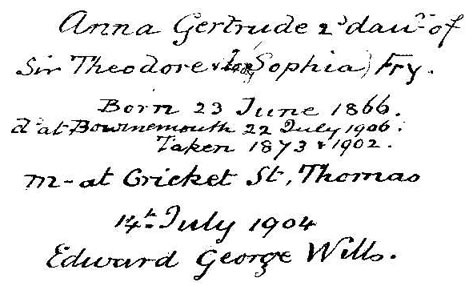 Anna Gertrude 2d daur of
Sir Theodore & Sophia) Fry.
Born 23 June 1866.
d. at Bournemouth 22 July 1906.
Taken 1873 & 1902.
m- at Cricket St, Thomas
14th July 1904
Edward George Wills.